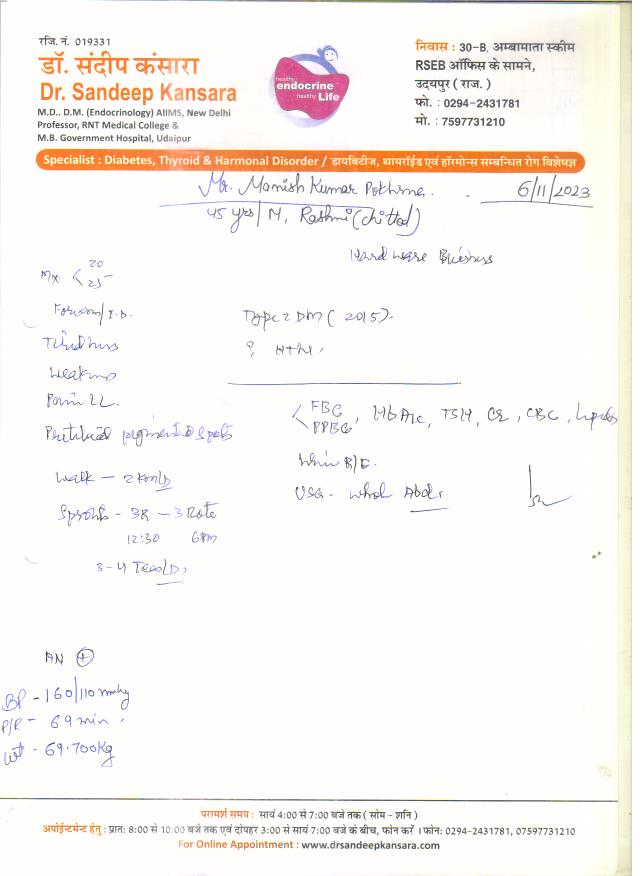 रजि. नं. 019331
डॉ. संदीप कंसारा
Dr. Sandeep Kansara
M.D., D.M. (Endocrinology) AIIMS, New Delhi
Professor, RNT Medical College &
M.B. Government Hospital, Udaipur
healthy
endocrine
healthy Life
निवास : 30-B, अम्बामाता स्कीम
RSEB ऑफिस के सामने,
उदयपुर ( राज. )
फो. : 0294-2431781
मो. : 7597731210
Specialist : Diabetes, Thyroid & Harmonal Disorder / डायबिटीज, थायरॉईड एवं हॉरमोन्स सम्बन्धित रोग विशेषज्ञ
Mr. Manish Kumar 6/11/2023
45 yrs/M, Rashmi (Chittod)
Hardware Business
20
25
Type 2 DM (2015).
? HTN.
Weakness
Pain LL.
FBG
PPBG, HbA1c, TSH, CR, CBC, Lipids
Urine R/E.
USG - Whole Abd.
Walk - 2 Km/D
3R - 3 Rote
12:30 6PM
3-4 Teas/D,
AN +
BP - 160/110 mmhg
P/R - 69 min.
wt - 69.700kg
परामर्श समय : सायं 4:00 से 7:00 बजे तक ( सोम - शनि )
अपोईन्टमेन्ट हेतु : प्रात: 8:00 से 10:00 बजे तक एवं दोपहर 3:00 से सायं 7:00 बजे के बीच, फोन करें । फोन: 0294-2431781, 07597731210
For Online Appointment : www.drsandeepkansara.com